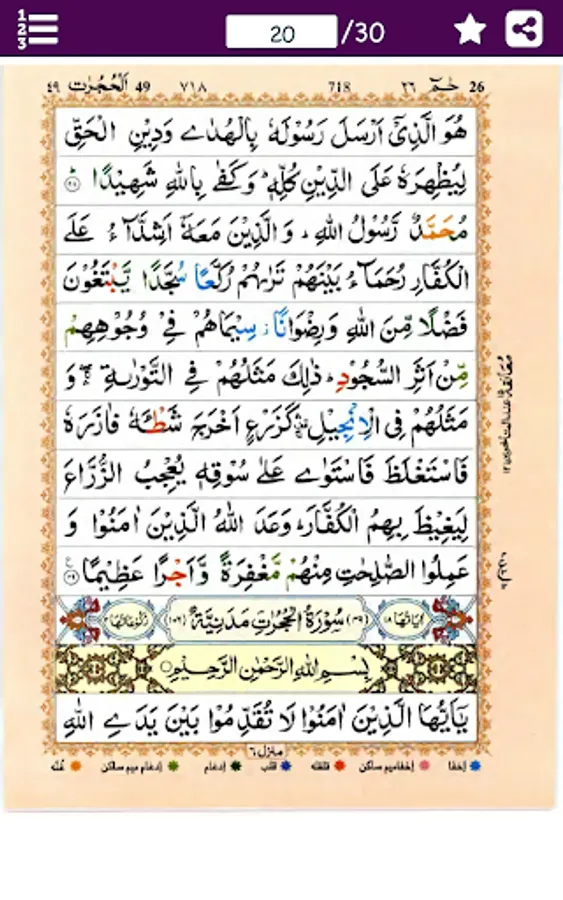 20 /30
26 حٰمٓ ٢٦ 718 ٧١٨ 49 اَلْحُجُرٰت ٤٩
هُوَ الَّذِيْۤ اَرْسَلَ رَسُوْلَهٗ بِالْهُدٰى وَدِيْنِ الْحَقِّ
لِيُظْهِرَهٗ عَلَى الدِّيْنِ كُلِّهٖ ؕ وَكَفٰى بِاللّٰهِ شَهِيْدًا ؕ ﴿٢٨﴾
مُحَمَّدٌ رَّسُوْلُ اللّٰهِ ؕ وَالَّذِيْنَ مَعَهٗۤ اَشِدَّآءُ عَلَى
الْكُفَّارِ رُحَمَآءُ بَيْنَهُمْ تَرٰىهُمْ رُكَّعًا سُجَّدًا يَّبْتَغُوْنَ
فَضْلًا مِّنَ اللّٰهِ وَرِضْوَانًا ؗ سِيْمَاهُمْ فِيْ وُجُوْهِهِمْ
مِّنْ اَثَرِ السُّجُوْدِ ؕ ذٰلِكَ مَثَلُهُمْ فِي التَّوْرٰىةِ ۛۖۚ وَ
مَثَلُهُمْ فِي الْاِنْجِيْلِ ۛۚ كَزَرْعٍ اَخْرَجَ شَطْـَٔهٗ فَاٰزَرَهٗ
فَاسْتَغْلَظَ فَاسْتَوٰى عَلٰى سُوْقِهٖ يُعْجِبُ الزُّرَّاعَ
لِيَغِيْظَ بِهِمُ الْكُفَّارَ ؕ وَعَدَ اللّٰهُ الَّذِيْنَ اٰمَنُوْا وَ
عَمِلُوا الصّٰلِحٰتِ مِنْهُمْ مَّغْفِرَةً وَّاَجْرًا عَظِيْمًا ﴿٢٩﴾
اٰيَاتُهَا ١٨ (٤٩) سُوْرَةُ الْحُجُرٰتِ مَدَنِيَّةٌ (١٠٦) رُكُوْعَاتُهَا ٢
بِسْمِ اللّٰهِ الرَّحْمٰنِ الرَّحِيْمِ
يٰۤاَيُّهَا الَّذِيْنَ اٰمَنُوْا لَا تُقَدِّمُوْا بَيْنَ يَدَيِ اللّٰهِ
منزل ٦
إخفا إخفا میم ساکن قلقله قلب إدغام إدغام میم ساکن غنه